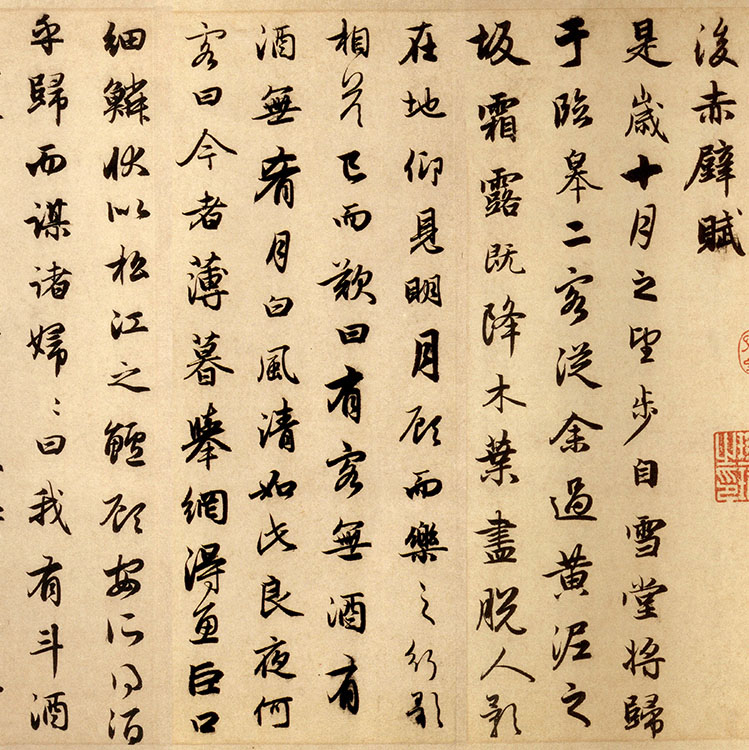 後赤壁賦
是歲十月之望步自雪堂將歸
于臨皋二客從余過黃泥之
坂霜露既降木葉盡脫人影
在地仰見明月顧而樂之行歌
相答已而歎曰有客無酒有
酒無肴月白風清如此良夜何
客曰今者薄暮舉網得魚巨口
細鱗狀似松江之鱸顧安所得酒
乎歸而謀諸婦〻曰我有斗酒